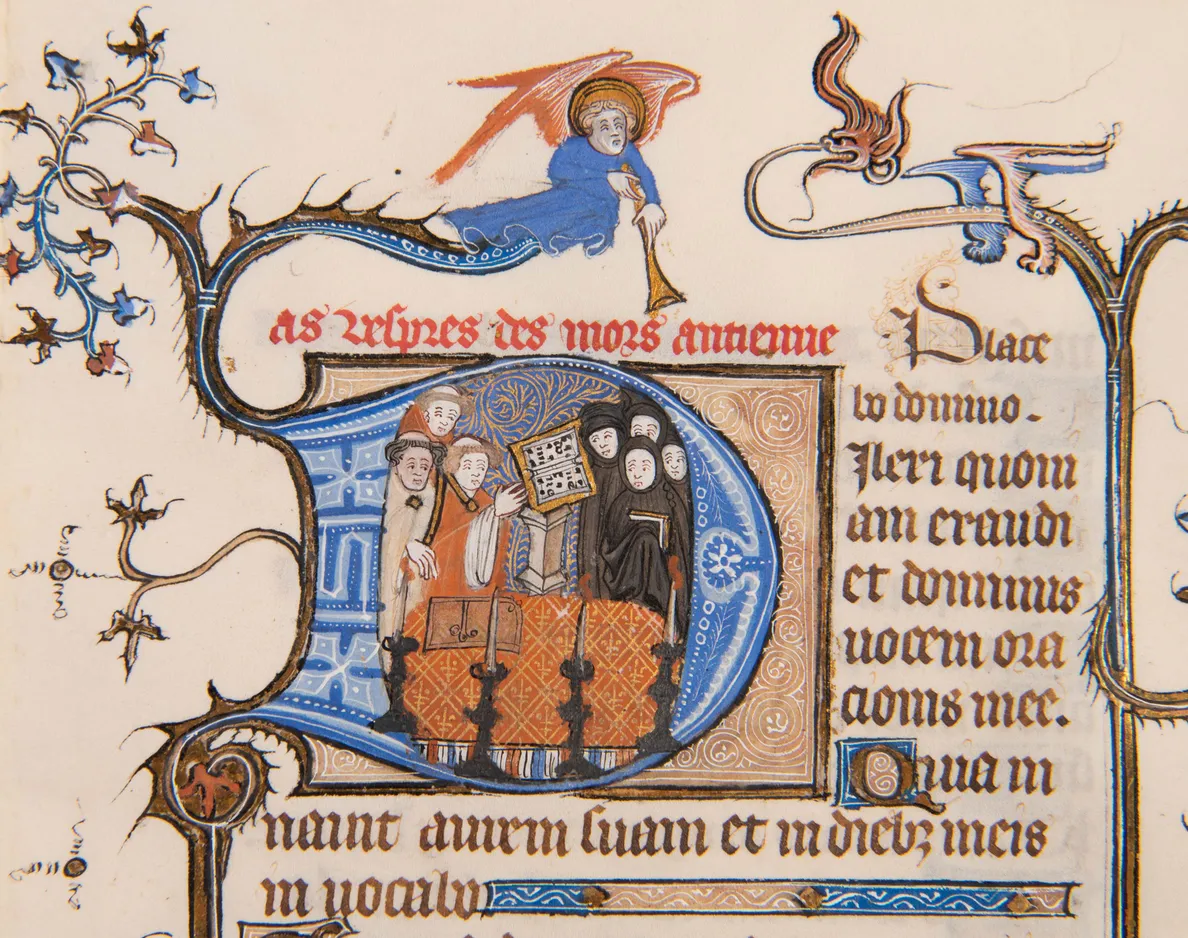 as vespres des mors antienne
Place
bo domino.
DIlexi quoni
am exaudi
et dominus
uocem ora
cionis mee.
Quia in
nauit aurem suam et in diebꝫ meis
in uocabo